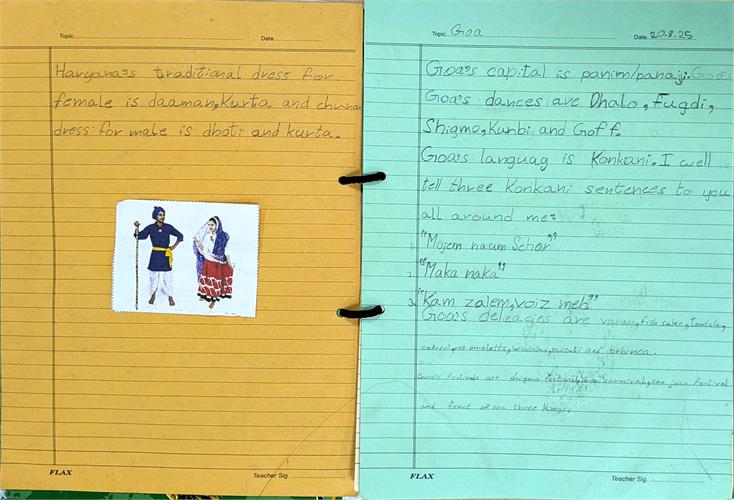 Topic
Date
Haryana's traditional dress for
female is daaman, Kurta and chunar
dress for male is dhoti and kurta.
FLAX
Teacher Sig.
Topic Goa
Date 20.8.25
Goa's capital is panim/panaji. Goa's
Goa's dances are Dhalo, Fugdi,
Shigmo, Kunbi and Goff.
Goa's languag is Konkani. I well
tell three Konkani sentences to you
all around me:
1. "Mojem naum Sehar"
2. "Maka naka"
3. "Kam zalem, voiz meb"
Goa's delicacies are varan, fish
and bebinca.
festivals are shigmo festival, carnival, sao joao festival
and feast of the three kings.
FLAX
Teacher Sig.